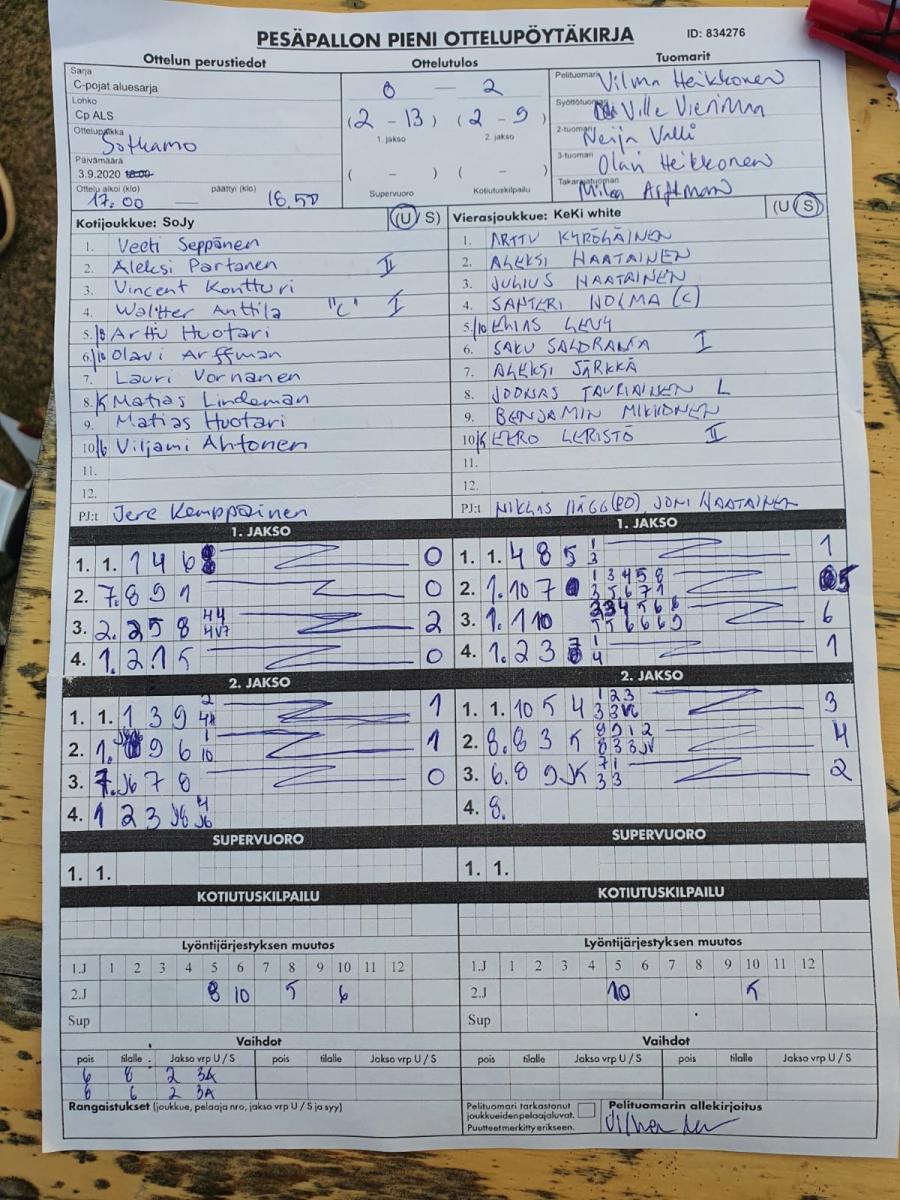 PESÄPALLON PIENI OTTELUPÖYTÄKIRJA
ID: 834276
Ottelun perustiedot
Sarja
C-pojat aluesarja
Lohko
Cp ALS
Ottelupaikka
Sotkamo
Päivämäärä
3.9.2020
Ottelu alkoi (klo) päättyi (klo)
17.00 — 18.50
Ottelutulos
0 — 2
(2 - 13) (2 - 9)
1. jakso 2. jakso
( - ) ( - )
Supervuoro Kotiutuskilpailu
Tuomarit
Pelituomari Vilma Heikkonen
Syöttötuomari Ville
2-tuomari
3-tuomari Olavi Heikkonen
Takarajatuomari Arffman
Kotijoukkue: SoJy (U S)
1. Veeti Seppänen
2. Aleksi Partanen II
3. Vincent Kontturi
4. Waltter Anttila "C" I
5./8 Arttu Huotari
6./10 Olavi Arffman
7. Lauri Vornanen
8./5 Matias Lindeman
9. Matias Huotari
10./6 Viljami Ahtonen
11.
12.
PJ:t Jere Kemppainen
Vierasjoukkue: KeKi white (U S)
1. ARTTU KYRÖLÄINEN
2. ALEKSI HAATAINEN
3. JULIUS HAATAINEN
4. SANTERI HOLMA (C)
5./10 ELIAS LEVY
6. SAKU SALORANTA I
7. ALEKSI SÄRKKÄ
8. JOONAS TAURIAINEN L
9. BENJAMIN MIKKONEN
10./5 EERO LERISTÖ II
11.
12.
PJ:t NIKLAS HÄGG (PO), JONI HAATAINEN
1. JAKSO
1. 1. 1 4 6 8 0
2. 7. 8 9 1 0
3. 2. 2 5 8 2
4. 1. 2 1 5 0
1. JAKSO
1. 1. 4 8 5 1 3 1
2. 1. 10 7 5
3. 1. 1 10 6
4. 1. 2 3 1 4 1
2. JAKSO
1. 1. 1 3 9 1
2. 1. 9 6 1 10 1
3. 7. 7 8 0
4. 1 2 3
2. JAKSO
1. 1. 10 5 4 1 2 3 3
2. 8. 8 3 5 4
3. 6. 8 9 7 1 3 3 2
4. 8.
SUPERVUORO
1. 1.
SUPERVUORO
1. 1.
KOTIUTUSKILPAILU
KOTIUTUSKILPAILU
Lyöntijärjestyksen muutos
1.J 1 2 3 4 5 6 7 8 9 10 11 12
2.J 8 10 5 6
Sup
Lyöntijärjestyksen muutos
1.J 1 2 3 4 5 6 7 8 9 10 11 12
2.J 10 5
Sup
Vaihdot
pois tilalle Jakso vrp U / S pois tilalle Jakso vrp U / S
6 8 2 3A
8 6 2 3A
Vaihdot
pois tilalle Jakso vrp U / S pois tilalle Jakso vrp U / S
Rangaistukset (joukkue, pelaaja nro, jakso vrp U / S ja syy)
Pelituomari tarkastanut
joukkueiden pelaajaluvat.
Puutteet merkitty erikseen.
Pelituomarin allekirjoitus